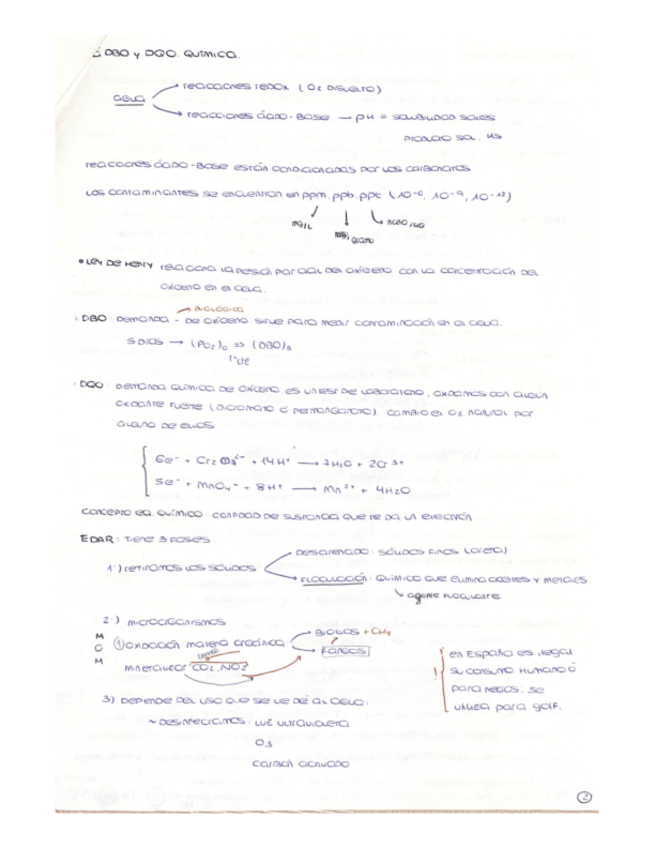 DBO y DQO. QUÍMICA.
AGUA
reacciones redox (O2 disuelto)
reacciones ácido-base → pH = solubilidad sales
producto sol. Ks
reacciones ácido-base están condicionadas por los carbonatos.
Los contaminantes se encuentran en ppm, ppb, ppt (10-6, 10-9, 10-12)
mg/L
nano
• LEY DE HENRY relaciona la presión parcial del oxígeno con la concentración del
oxígeno en el agua.
BIOLÓGICA
· DBO: Demanda - de oxígeno. Sirve para medir contaminación en el agua.
5 días → (PO2)0 => (DBO)5
Tª cte
· DQO: Demanda química de oxígeno. es un test de laboratorio, oxidamos con algún
oxidante fuerte (dicromato ó permanganato) cambio el O2 natural por
alguno de ellos
6e- + Cr2O7 2- + 14H+ → 7H2O + 2Cr 3+
5e- + MnO4- + 8H+ → Mn2+ + 4H2O
Concepto eq. químico: cantidad de sustancia que te da un electrón
EDAR: Tiene 3 fases
1º) retiramos los sólidos
Desarenado: sólidos finos (arena)
Floculación: químico que elimina aceites y metales
agente floculante
2º) microorganismos
MOM
① oxidación materia orgánica
BIOGÁS + CH4
FANGOS
mineralizar CO2, NO3
en España es ilegal
su consumo humano ó
para riegos. se
utiliza para golf.
3) Depende del uso que se le dé al agua:
~ Desinfectamos: luz ultravioleta
O3
carbón activado
2